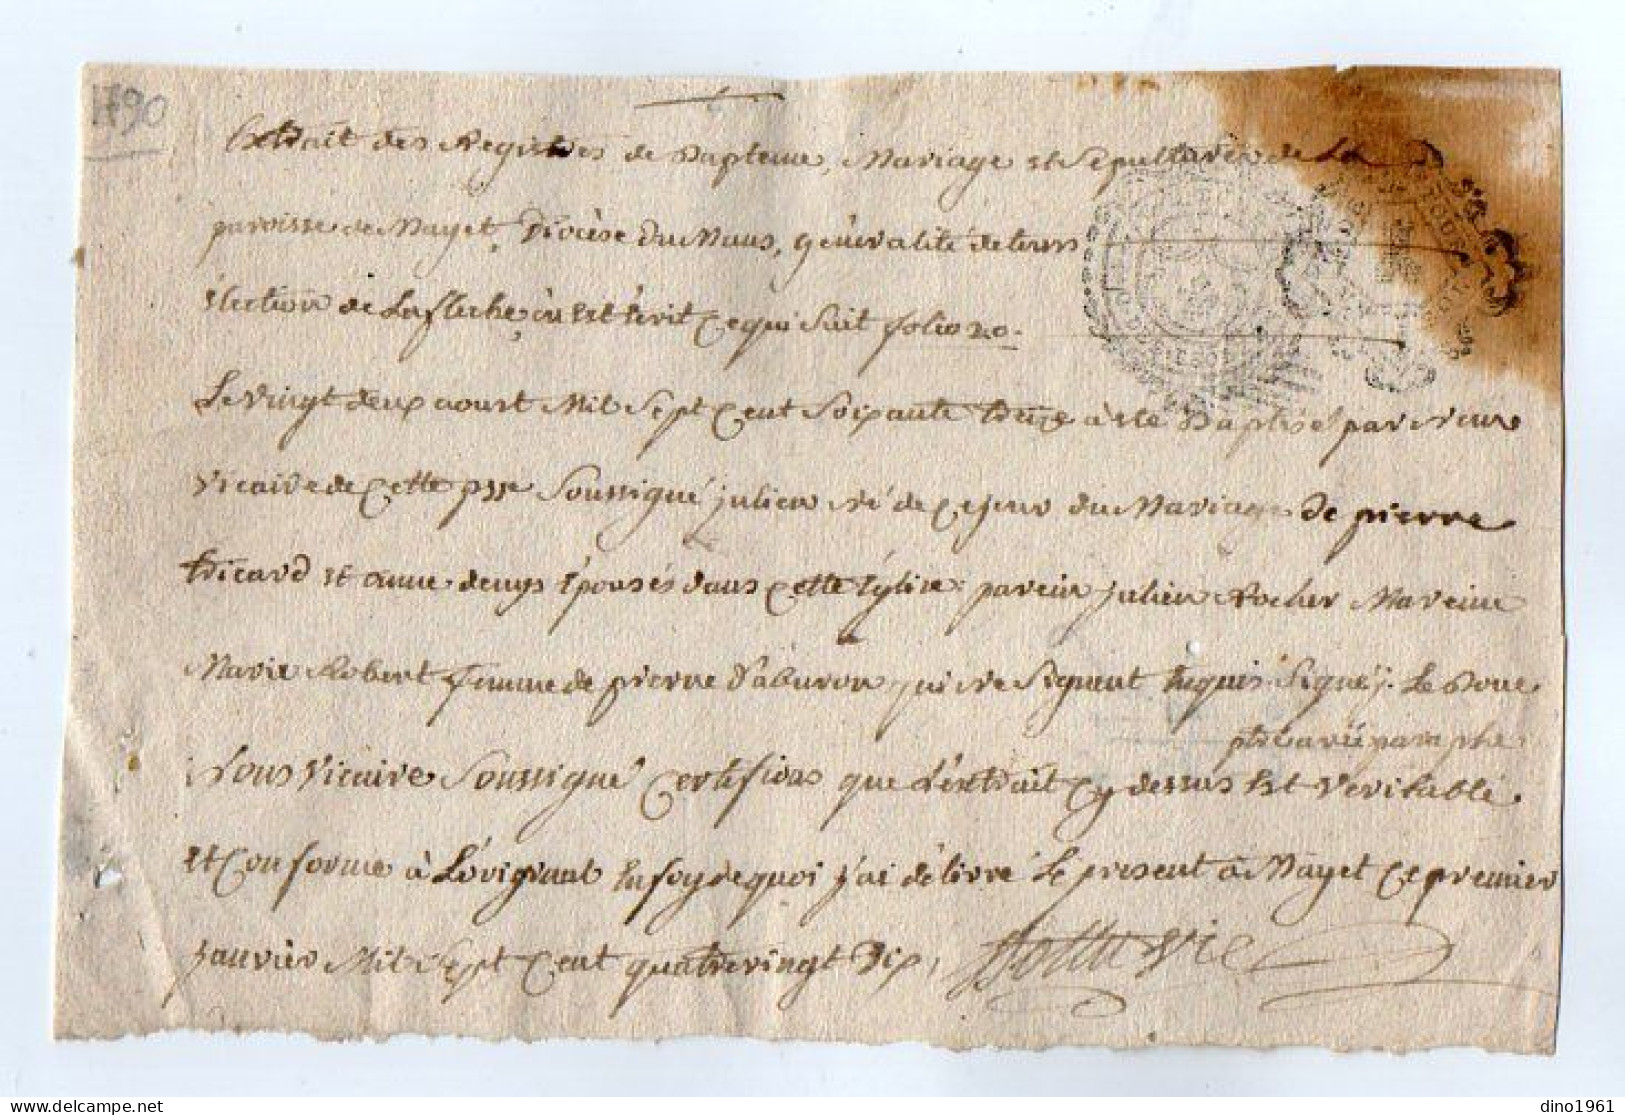 1790
Extrait des Registres de Bapteme, Mariage et Sepultures de La
paroisse de Mayet, Diocèse du Mans, généralité de tours
élection de La fleche, où est écrit ce qui suit folio 20.
Le vingt deux aoust Mil Sept Cent Soixante treize à été Baptisé par Nous
vicaire de Cette psse Soussigné julien né de ce jour du Mariage de pierre
tricard et anne denys épousés dans Cette église parein julien Rocher Mareine
Marie Robert femme de pierre qui ne Signent Signé j. Le
ptre paraphe
Nous vicaire Soussigné Certifions que L'extrait Cy dessus est veritable
et Conforme à L'original en foy de quoi j'ai délivré Le présent à Mayet Ce premier
janvier Mil Sept Cent quatrevingt Dix,
vic
dino1961